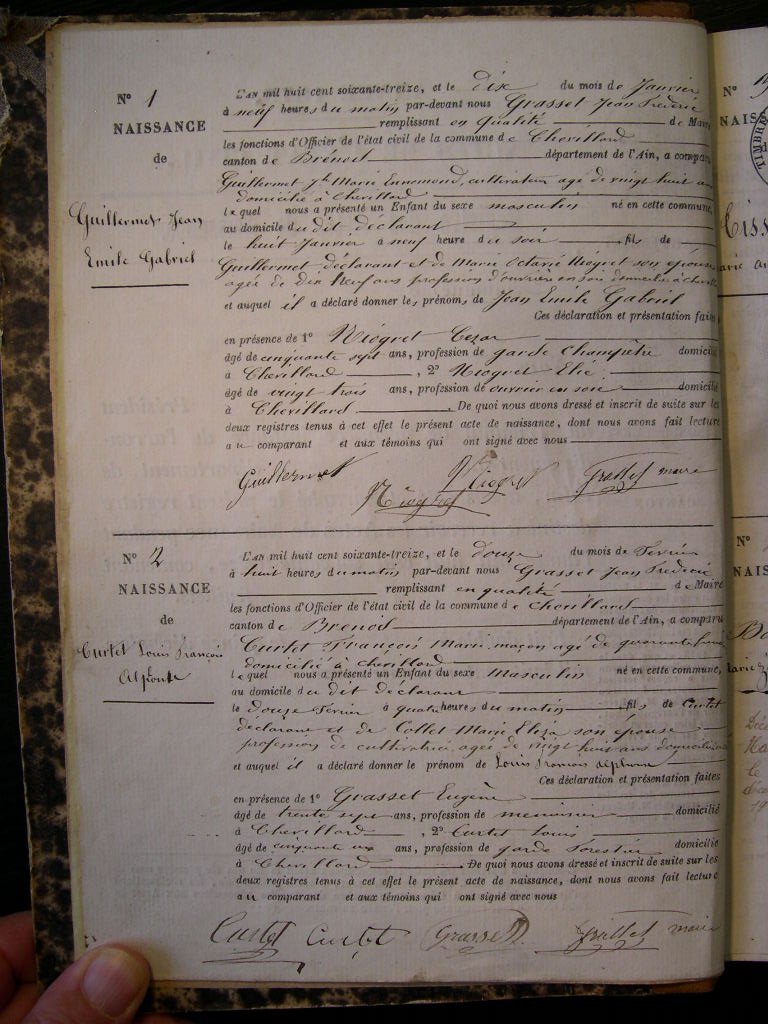 N° 1
NAISSANCE
de
Guillermet Jean
Emile Gabriel
L'AN mil huit cent soixante-treize, et le dix du mois de Janvier
à neuf heures du matin par-devant nous Grasset Jean Frederic
remplissant en qualité de Maire
les fonctions d'Officier de l'état civil de la commune de Chevillard
canton de Brénod département de l'Ain, a comparu
Guillermet Marie Ennemond, cultivateur agé de vingt huit ans
domicilié à Chevillard
lequel nous a présenté un Enfant du sexe masculin né en cette commune,
au domicile du dit déclarant
le huit Janvier à neuf heure du soir fils de
Guillermet déclarant et de Marie Octavie Niogret son épouse
agée de Dix Neuf ans profession d'ouvrière en soie domiciliée à
et auquel il a déclaré donner les prénoms de Jean Emile Gabriel
Ces déclaration et présentation faites
en présence de 1° Niogret Cezar
âgé de cinquante sept ans, profession de garde Champêtre domicilié
à Chevillard, 2° Niogret Elie
âgé de vingt trois ans, profession de ouvrier en soie domicilié
à Chevillard. De quoi nous avons dressé et inscrit de suite sur les
deux registres tenus à cet effet le présent acte de naissance, dont nous avons fait lecture
au comparant et aux témoins qui ont signé avec nous
Guillermet Niogret Niogret Grasset maire
N° 2
NAISSANCE
de
Curtet Louis François
Alphonse
L'AN mil huit cent soixante-treize, et le douze du mois de Fevrier
à huit heures du matin par-devant nous Grasset Jean Frederic
remplissant en qualité de Maire
les fonctions d'Officier de l'état civil de la commune de Chevillard
canton de Brenod département de l'Ain, a comparu
Curtet François Marie maçon agé de quarante
domicilié à chevillard
lequel nous a présenté un Enfant du sexe Masculin né en cette commune,
au domicile du dit déclarant
le douze Fevrier à quatre heures du matin fils de Curtet
déclarant et de Collet Marie Eliza son épouse
profession de cultivatrice, agée de vingt huit ans domiciliée
et auquel il a déclaré donner le prénom de Louis François Alphonse
Ces déclaration et présentation faites
en présence de 1° Grasset Eugène
âgé de trente sept ans, profession de menuisier domicilié
à Chevillard, 2° Curtet Louis
âgé de cinquante ans, profession de garde forestier domicilié
à Chevillard. De quoi nous avons dressé et inscrit de suite sur les
deux registres tenus à cet effet le présent acte de naissance, dont nous avons fait lecture
au comparant et aux témoins qui ont signé avec nous
Curtet Curtet Grasset Grasset maire
N°
NAISS
TIMBRE
N°
NAIS